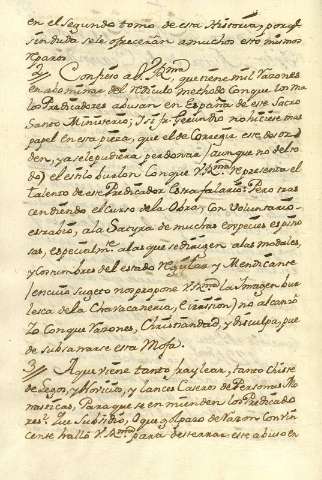 en el segundo tomo de esta Historia, porq.e
sin duda se le ofreceràn a muchos estos mismos
reparos.
2. Confieso a V. Rma que tiene mil razones
en abominar del ridiculo methodo con que los ma
los Predicadores abusan en España de este Sacro
Santo Ministerio; I si fr Gerundio no hiciese mas
papel en esta pieza, que el de Corregir este desor
den, ya se le pudiera perdonar (aunque no del to
do) el estilo burlon con que V. Rma representa el
talento de este Predicador Extrafalario: Pero tras
cendiendo el curso de la Obra, con voluntario
estrabio, a la Satyra de muchas especies espino
sas, especialm.te a las que se dirigen a las modales,
y Costumbres del estado regular, y Mendicante
(en cuio sugeto nos propone V. Rma la Imagen bur
lesca de la Chavacanería, e irrision) no alcanzo
Yo con que razones, Christiandad, y disculpa, pue
de subsanarse esta Mofa.
3. A que viene tanto frayle, tanto Chiste
de Lego, y Novicio, y lances Caseros de Personas Mo
nasticas, Para que se enmienden los Predicado
res? Que Subsidio, O que golpazo de razon Convin
cente halló V. Rma para desterrar este abuso en